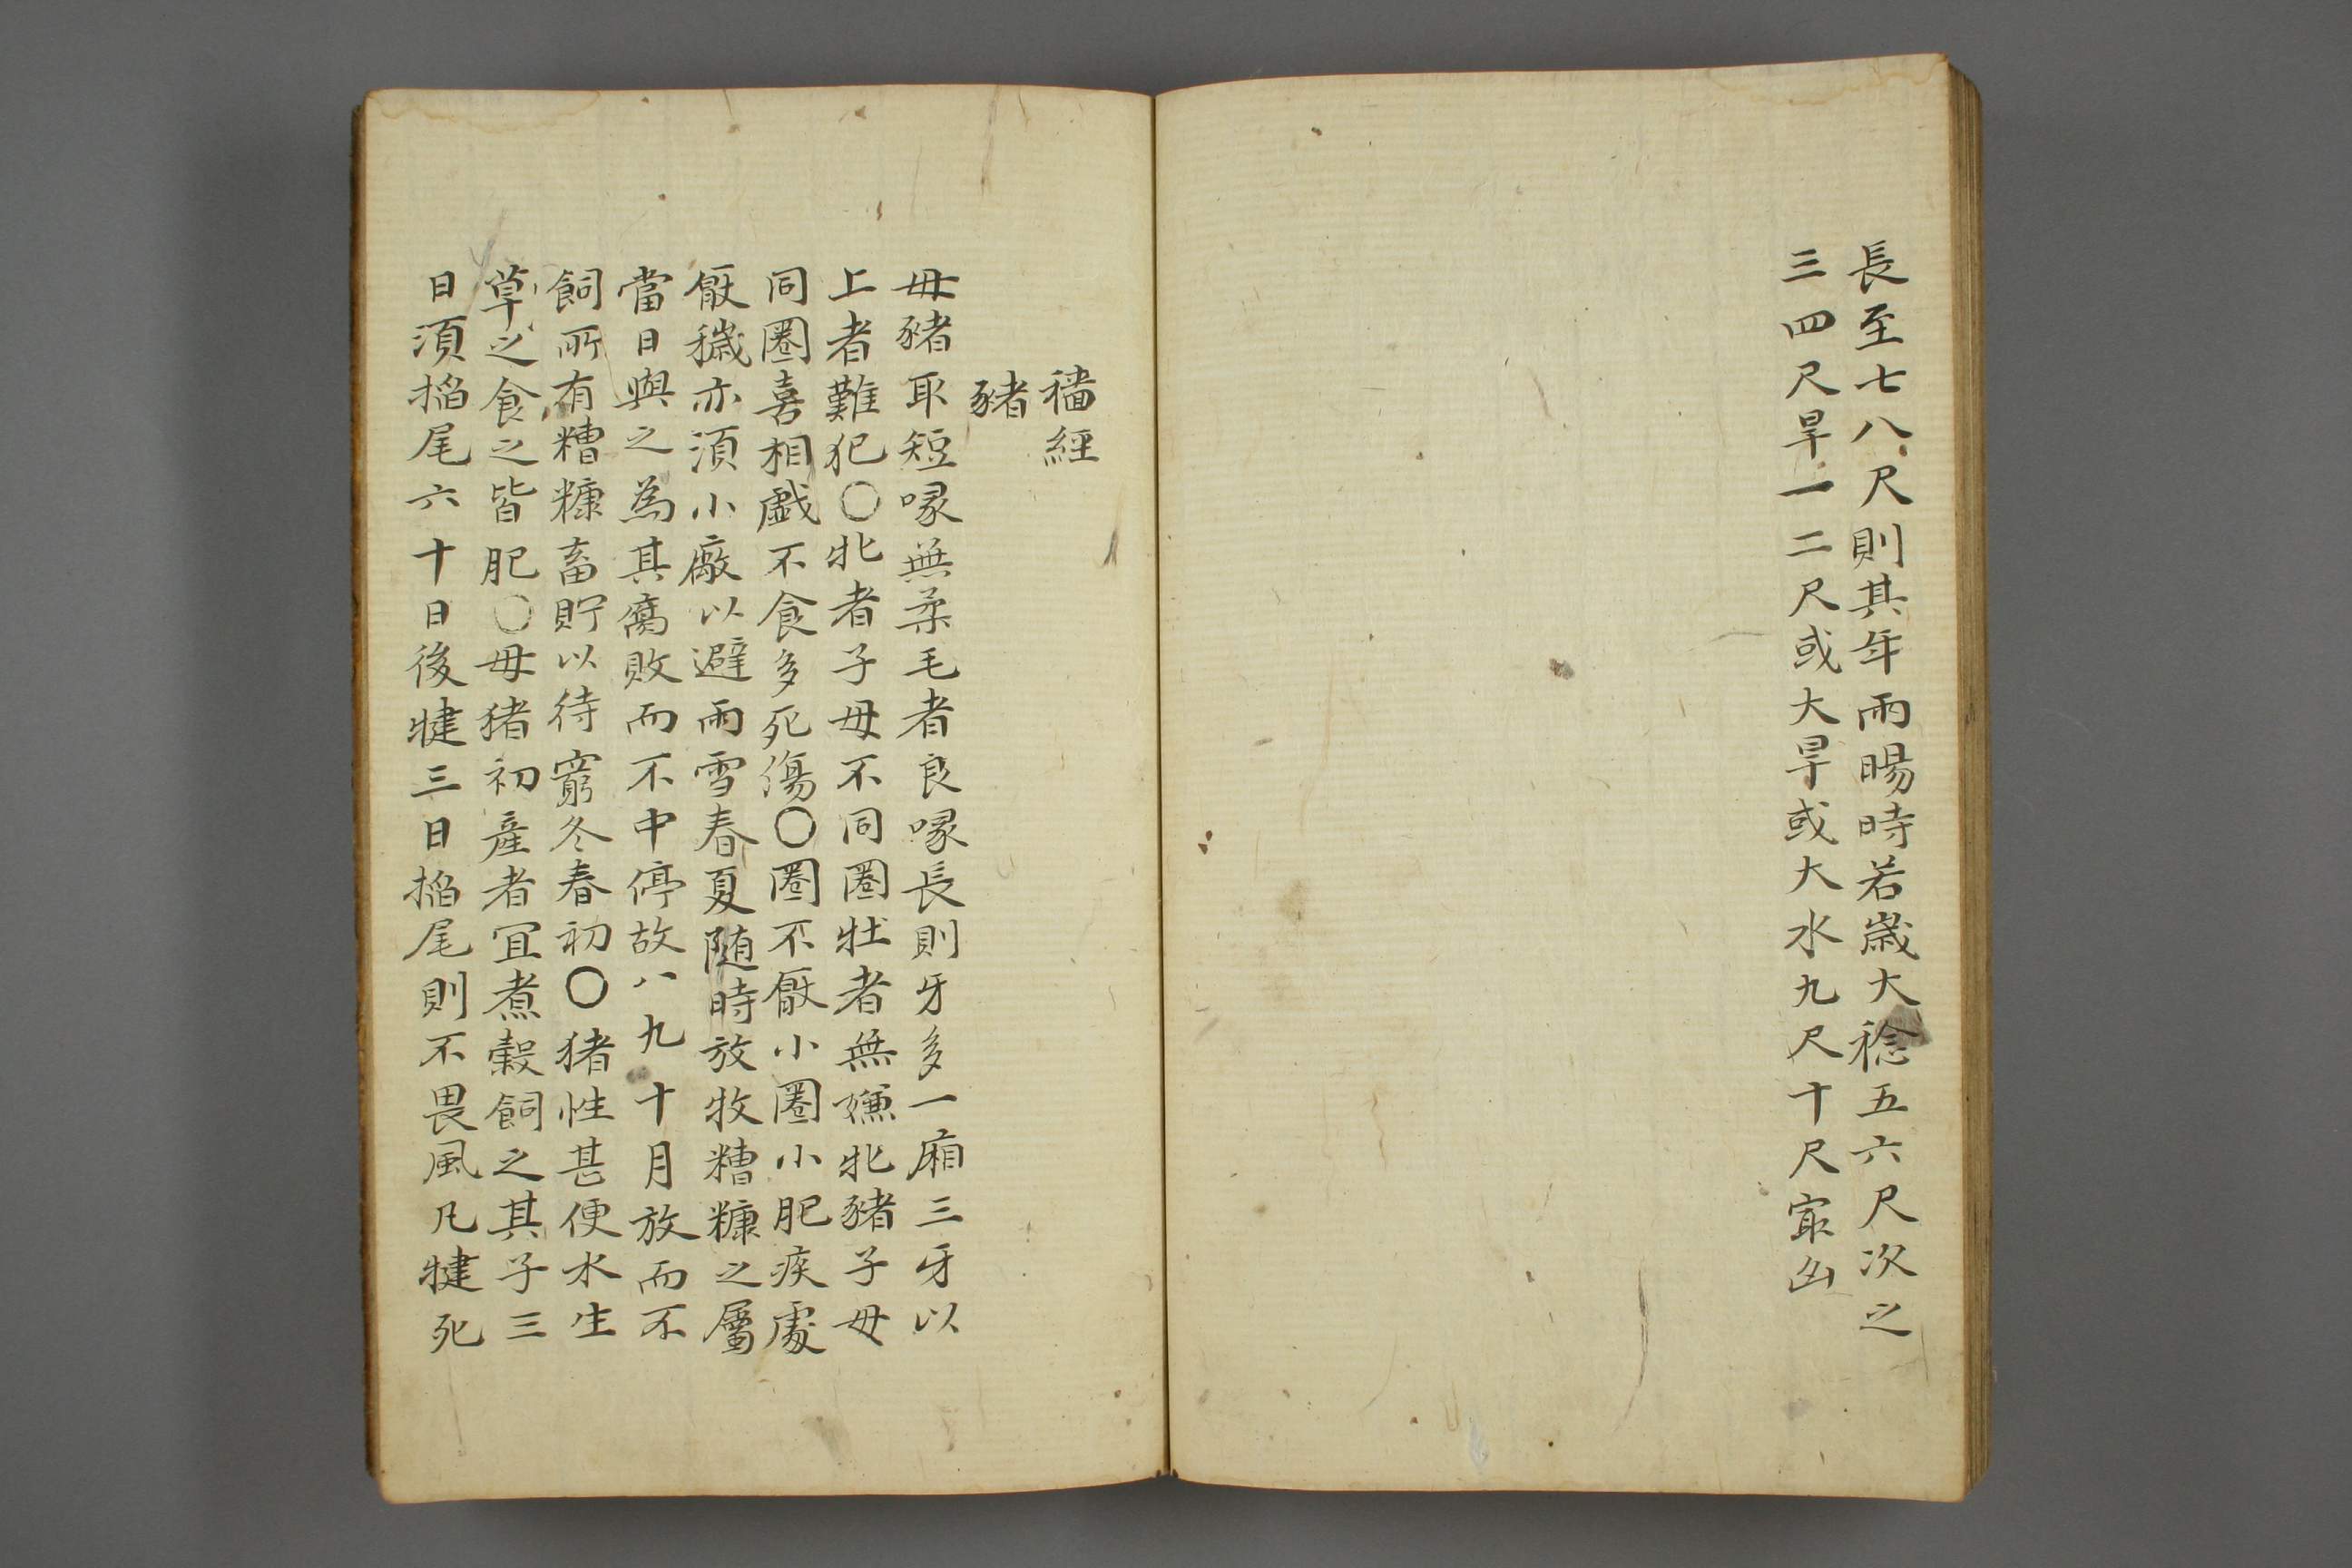 長至七八尺則其年雨暘時若歲大稔五六尺次之
三四尺旱一二尺或大旱或大水九尺十尺寂凶
穡經
豬
毋豬取短喙無柔毛者良喙長則牙多一廂三牙以
上者難犯○牝者子母不同圈牡者無嫌牝豬子母
同圈喜相戱不食多死傷○圈不厭小圈小肥疾處
厭穢亦湏小厰以避雨雪春夏随時放牧糟糠之屬
當日與之為其腐敗而不中停故八九十月放而不
飼所有糟糠畜貯以待窮冬春初○猪性甚便水生
草之食之皆肥○母猪初産者宜煮穀飼之其子三
日湏掐尾六十日後犍三日掐尾則不畏風凡犍死